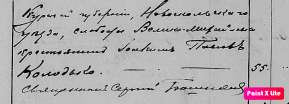 Курской губернiи, Новооскольскаго
уѣзда, слободы Велико-Михайловки
крестьянинъ Павловъ
Колодько.
55.
Священникъ Сергiй
Paint X Lite